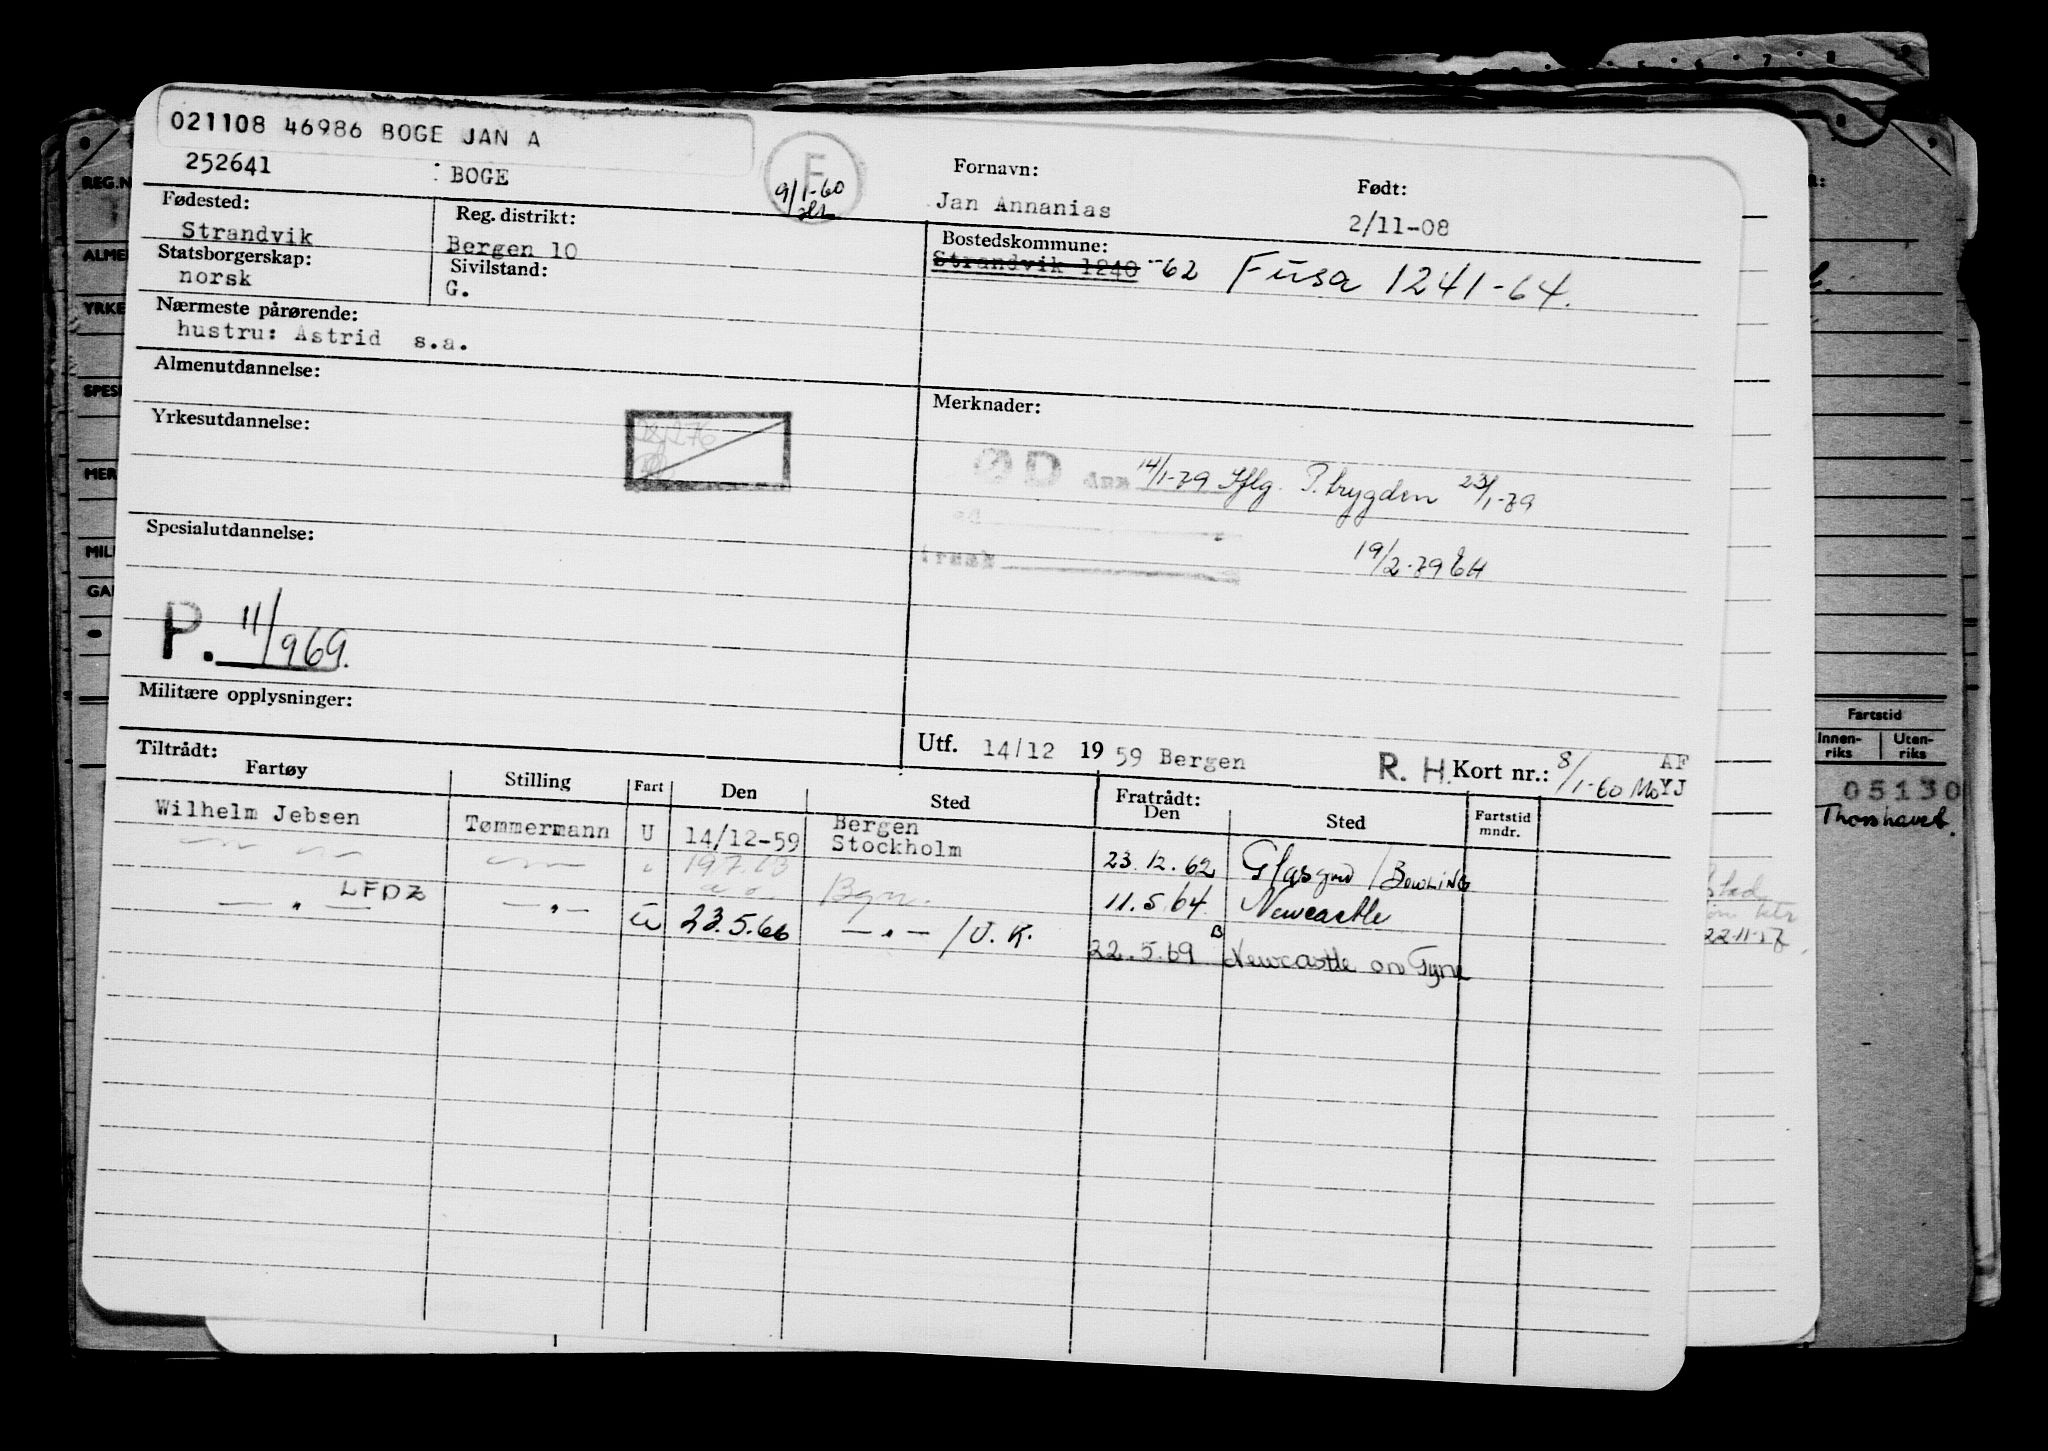 021108 46986 BOGE JAN A
252641 : BOGE
F
9/1-60
Fornavn:
Jan Annanias
Født:
2/11-08
Fødested:
Strandvik
Reg. distrikt:
Bergen 10
Bostedskommune:
Strandvik 1240 -62 Fusa 1241-64.
Statsborgerskap:
norsk
Sivilstand:
G.
Nærmeste pårørende:
hustru: Astrid s.a.
Almenutdannelse:
Merknader:
Yrkesutdannelse:
D 14/1-79 Iflg. P.trygden 23/1-79
19/2-79 EH
Spesialutdannelse:
P. 11/969.
Militære opplysninger:
Utf. 14/12 1959 Bergen R. H. Kort nr.: 8/1-60 Mo AF
YJ
Tiltrådt:
Fartøy Stilling Fart Den Sted Fratrådt: Den Sted Fartstid mndr.
Wilhelm Jebsen Tømmermann U 14/12-59 Bergen
Stockholm 23.12.62 Glasgow / BOWLING
19.7.63 Bgn. 11.5.64 Newcastle
— " — LFDZ — " — U 23.5.66 — " — / U.K. 22.5.69 Newcastle on Tyne
REG.N
ALME
YRKE
SPESI
MER
MIL
GA
Fartstid
Innen-riks Uten-riks
05130
Thorshavet.
22-11-57